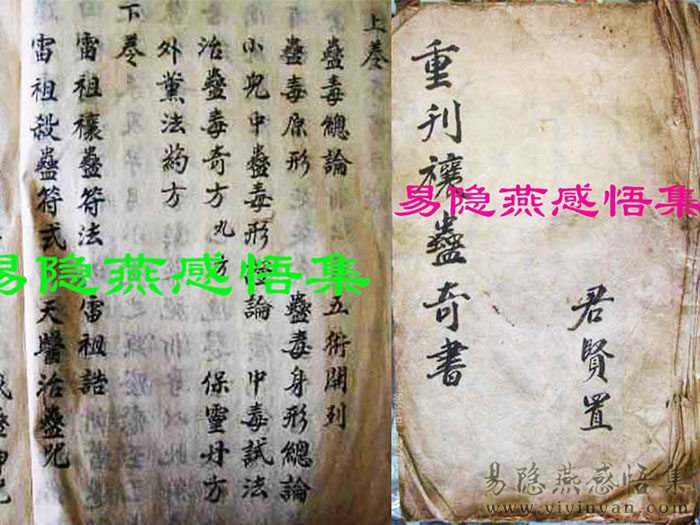 重刊禳蠱奇書
君賢置
易隐燕感悟集
易隐燕感悟集
www.yiyinyan.com
上卷
蠱毒總論 五術開列
蠱毒原形 蠱毒身形總論
小兒中蠱毒形 論 中毒試法
治蠱毒奇方 九方 保靈丹方
外薰法葯方
下卷
雷祖禳蠱符法 雷祖誥
雷祖殺蠱符式 天醫治蠱咒
易隐燕感悟集